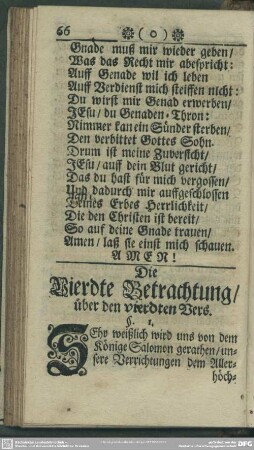 66 (o)
Gnade muß mir wieder geben/
Was das Recht mir abespricht:
Auff Genade wil ich leben
Auff Verdienst mich steiffen nicht:
Du wirst mir Genad erwerben/
JEsu/ du Genaden-Thron:
Nimmer kan ein Sünder sterben/
Den verbittet Gottes Sohn.
Drum ist meine Zuversicht/
JEsu/ auff dein Blut gericht/
Das du hast für mich vergossen/
Und dadurch mir auffgeschlossen
Deines Erbes Herrlichkeit/
Die den Christen ist bereit/
So auf deine Gnade trauen/
Amen/ laß sie einst mich schauen.
AMEN!
Die
Vierdte Betrachtung/
über den vierdten Vers.
§. 1.
SEhr weißlich wird uns von dem
Könige Salomon gerathen/ un-
sere Verrichtungen dem Aller-
höch-
DFG